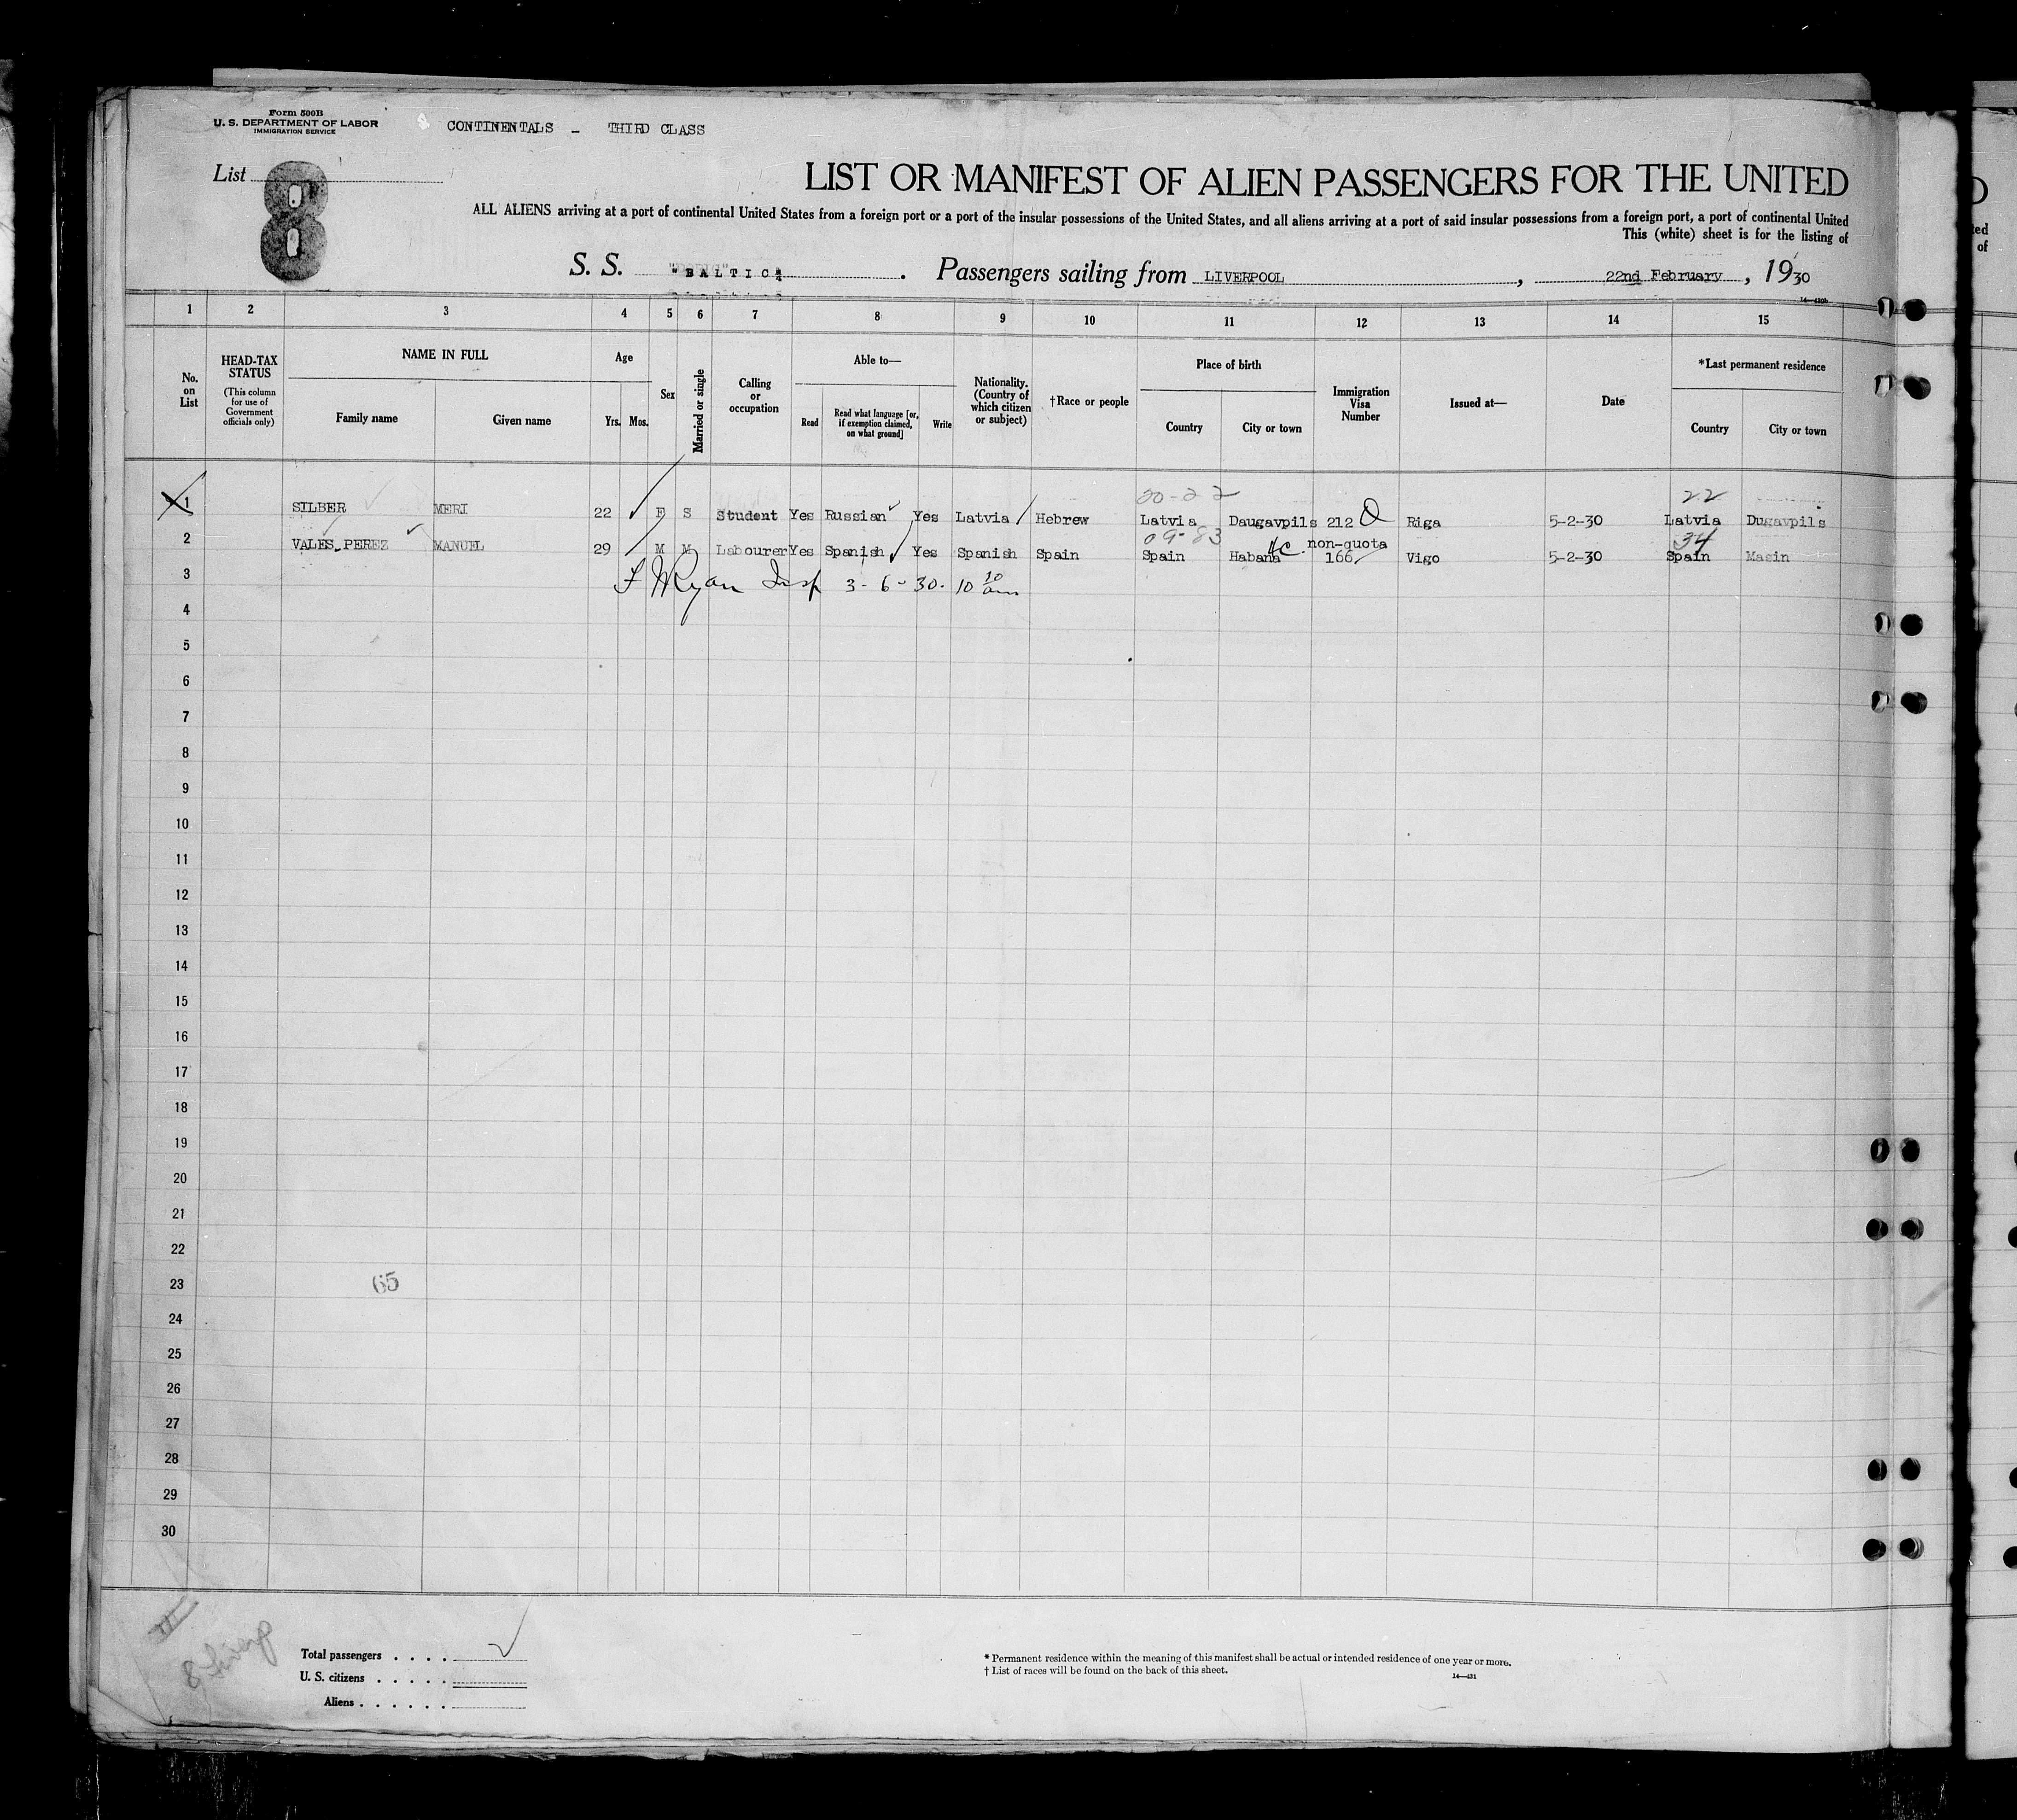 Form 500B
U. S. DEPARTMENT OF LABOR
IMMIGRATION SERVICE
CONTINENTALS - THIRD CLASS
List 8
LIST OR MANIFEST OF ALIEN PASSENGERS FOR THE UNITED
ALL ALIENS arriving at a port of continental United States from a foreign port or a port of the insular possessions of the United States, and all aliens arriving at a port of said insular possessions from a foreign port, a port of continental United
This (white) sheet is for the listing of
S. S. "BALTIC" . Passengers sailing from LIVERPOOL , 22nd February , 1930
1 2 3 4 5 6 7 8 9 10 11 12 13 14 15
No. on List
HEAD-TAX STATUS
(This column for use of Government officials only)
NAME IN FULL
Family name
Given name
Age
Yrs. Mos.
Sex
Married or single
Calling or occupation
Able to—
Read
Read what language [or, if exemption claimed, on what ground]
Write
Nationality. (Country of which citizen or subject)
†Race or people
Place of birth
Country
City or town
Immigration Visa Number
Issued at—
Date
*Last permanent residence
Country
City or town
20-22 22
1 SILBER MERI 22 F S Student Yes Russian Yes Latvia Hebrew Latvia Daugavpils 212 Q Riga 5-2-30 Latvia Dugavpils
09-83 non-quota 34
2 VALES PEREZ MANUEL 29 M M Labourer Yes Spanish Yes Spanish Spain Spain Habana 166 Vigo 5-2-30 Spain Masin
3 Ryan Insp 3-6-30. 10 10 am
4
5
6
7
8
9
10
11
12
13
14
15
16
17
18
19
20
21
22
23 65
24
25
26
27
28
29
30
Total passengers . . . .
U. S. citizens . . . . .
Aliens . . . . . .
* Permanent residence within the meaning of this manifest shall be actual or intended residence of one year or more.
† List of races will be found on the back of this sheet.
14—431